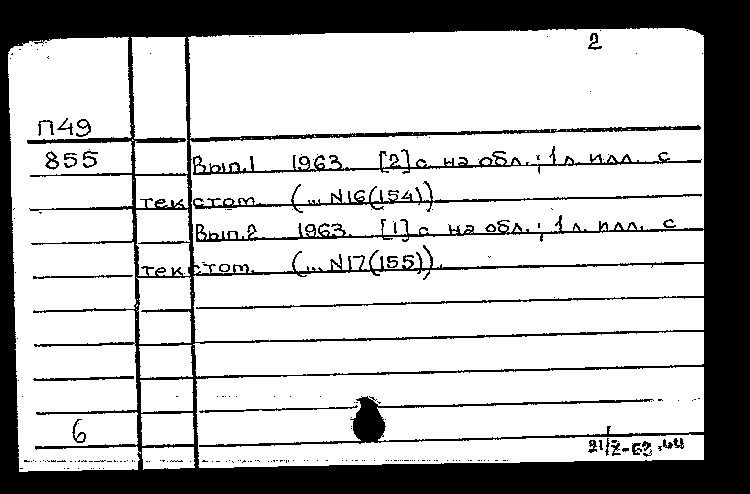 2
П49
855 Вып.1 1963. [2] с на обл.; 1 л. илл. с
текстом. (... N16(154))
Вып.2 1963. [1] с на обл.; 1 л. илл. с
текстом. (... N17(155)).
6